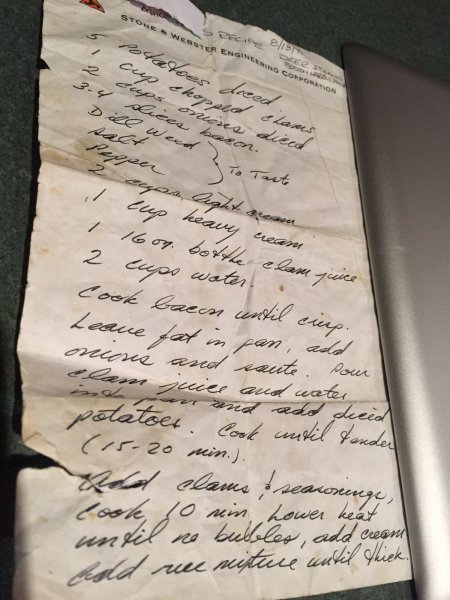 RECIPE 8/13/
STONE & WEBSTER ENGINEERING CORPORATION
DEER
5 potatoes diced
1 cup chopped clams
2 cups onions diced
3-4 slices bacon.
Dill Weed
Salt } To Taste
Pepper
2 cups light cream
1 cup heavy cream
1 16 on. bottle clam juice
2 cups water.
Cook bacon until crisp.
Leave fat in pan, add
onions and saute. Pour
clam juice and water
into pan and add diced
potatoes. Cook until tender
(15-20 min.).
Add clams & seasonings,
Cook 10 min. Lower heat
until no bubbles, add cream
add rue mixture until thick.